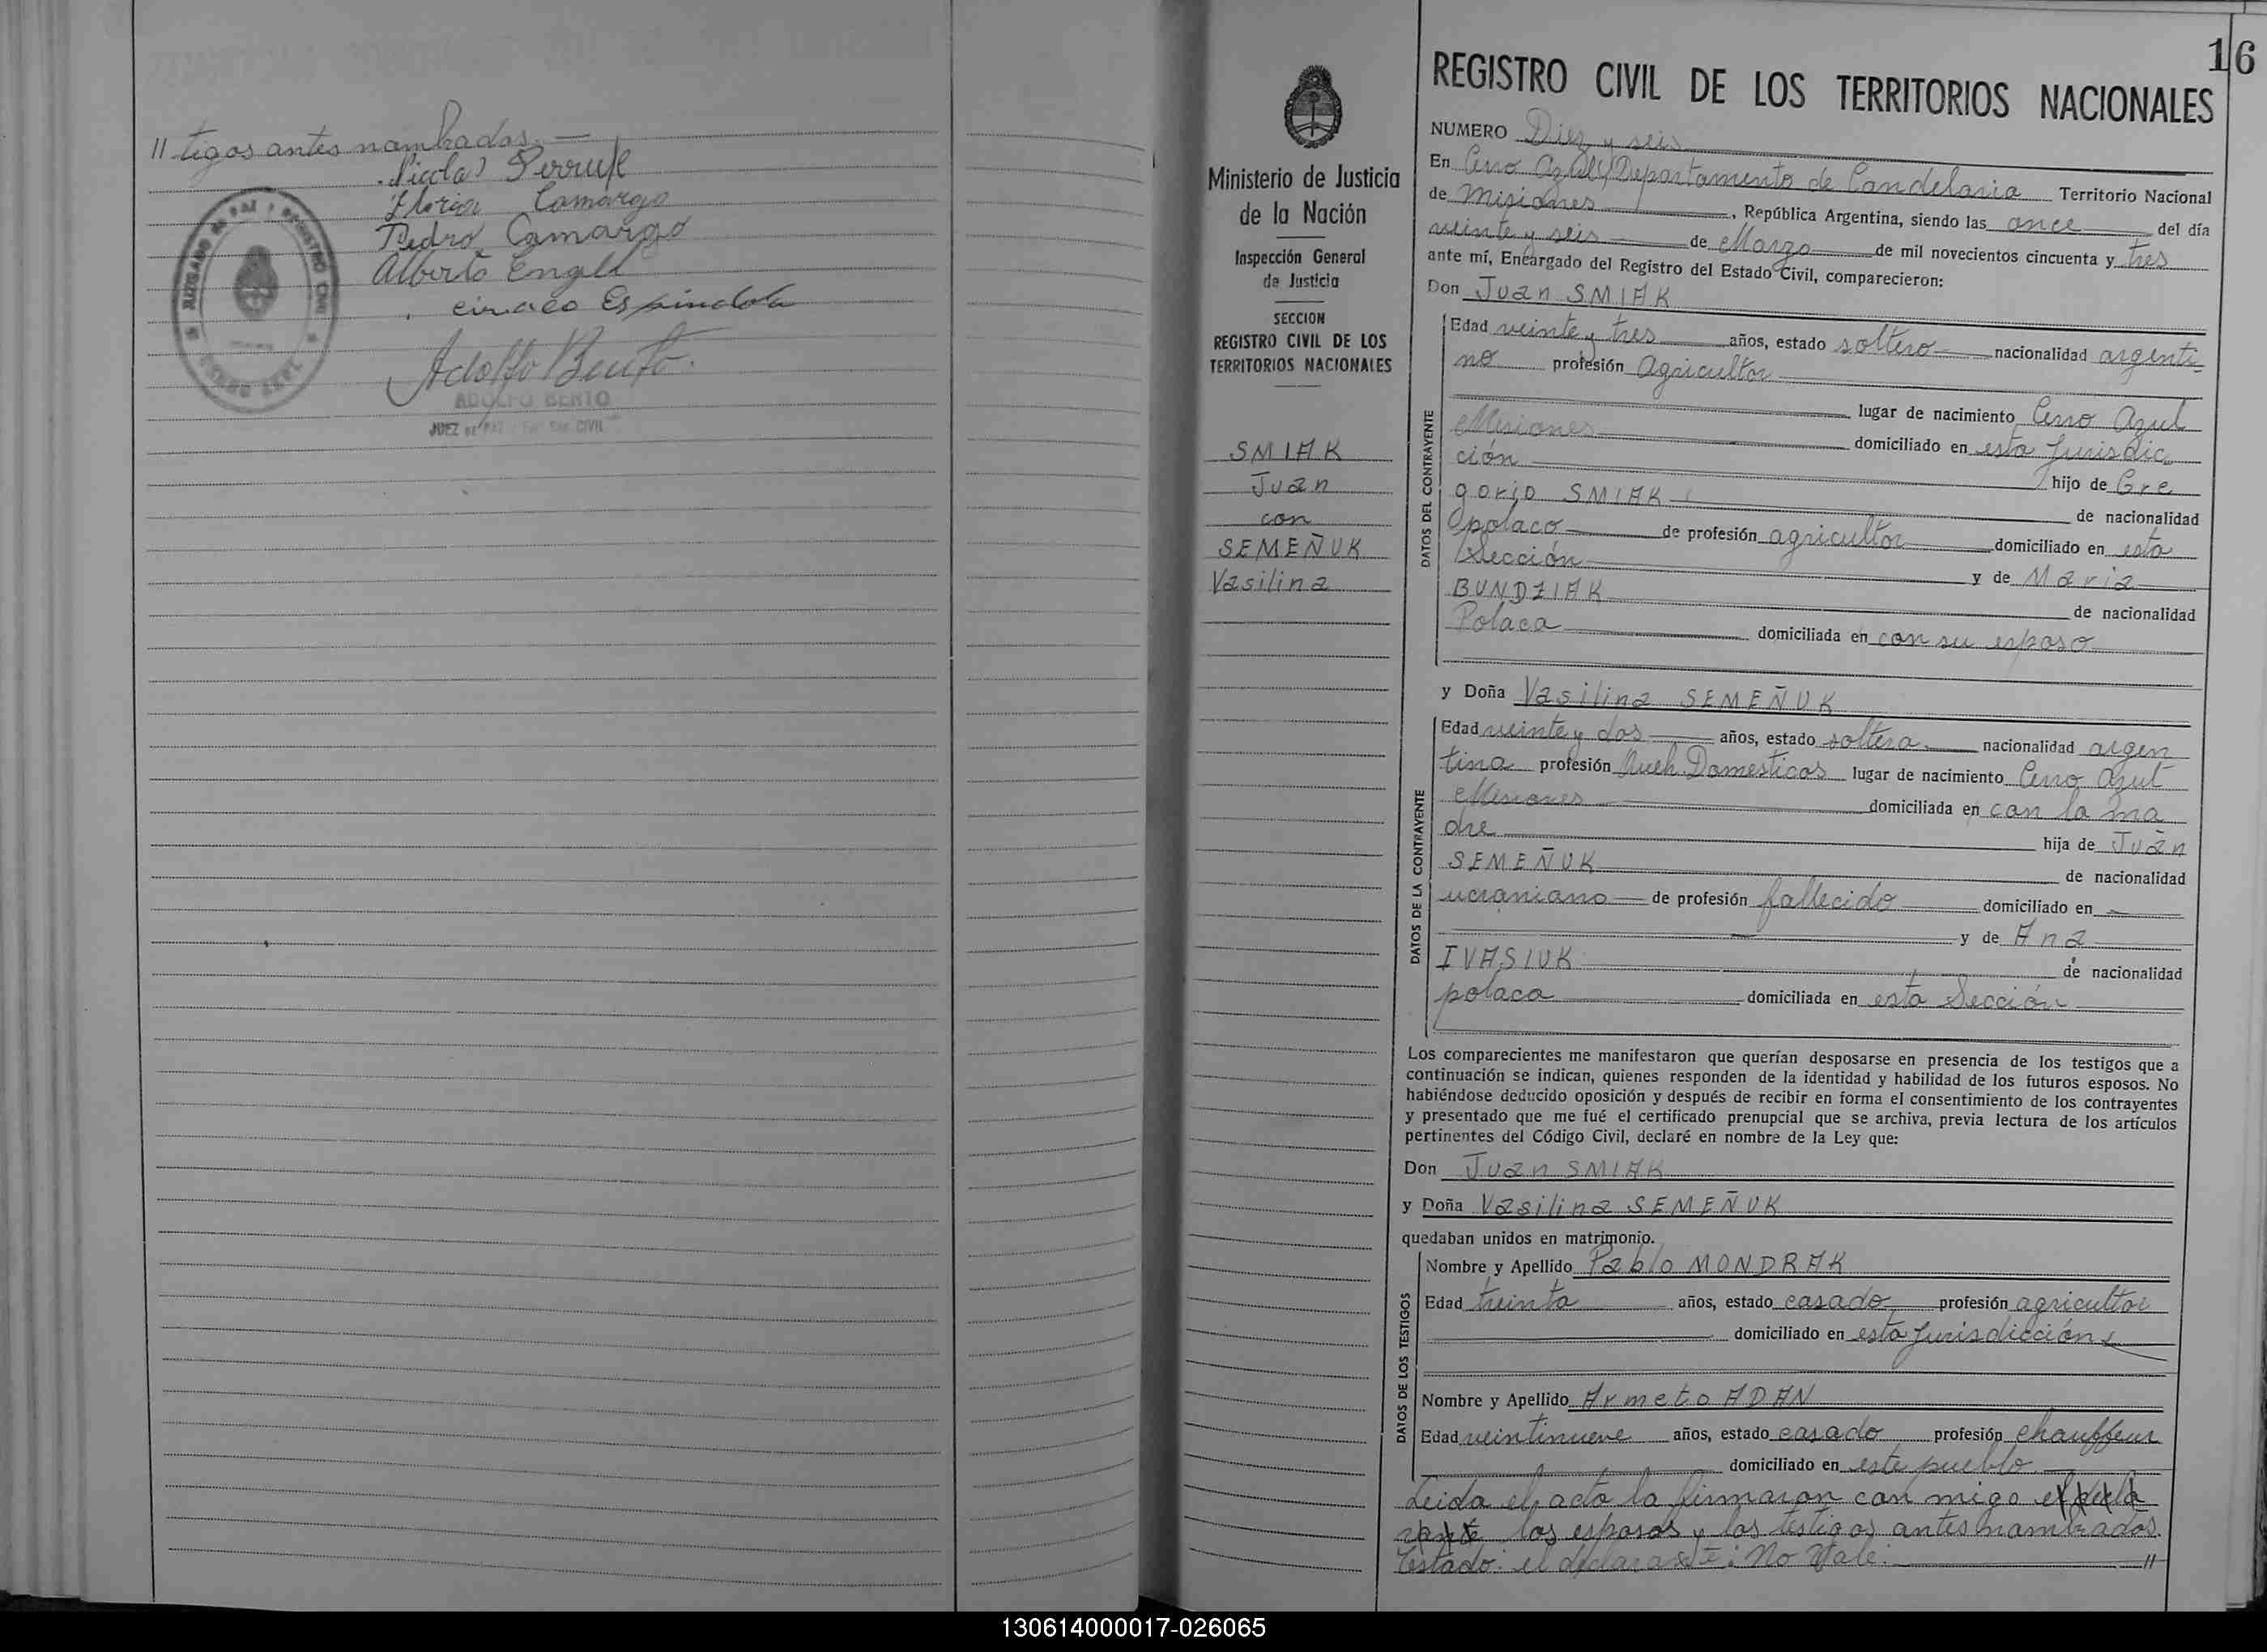 // tigos antes nombrados.—
Nicolas
Camargo
Pedro Camargo
Alberto Engel
Espindola
Adolfo Bento
ADOLFO BENTO
JUEZ DE PAZ CIVIL
JUZGADO DE PAZ Y REGISTRO CIVIL
CERRO AZUL
16
REGISTRO CIVIL DE LOS TERRITORIOS NACIONALES
Ministerio de Justicia
de la Nación
Inspección General
de Justicia
SECCION
REGISTRO CIVIL DE LOS
TERRITORIOS NACIONALES
SMIAK
Juan
con
SEMEÑUK
Vasilina
NUMERO Diez y seis
En Cerro Azul, Departamento de Candelaria Territorio Nacional
de Misiones, República Argentina, siendo las once del día
veinte y seis de Marzo de mil novecientos cincuenta y tres
ante mí, Encargado del Registro del Estado Civil, comparecieron:
Don Juan SMIAK
DATOS DEL CONTRAYENTE
Edad veinte y tres años, estado soltero nacionalidad argenti-
no profesión Agricultor
lugar de nacimiento Cerro Azul
Misiones domiciliado en esta Jurisdic
ción hijo de Gre
gorio SMIAK de nacionalidad
polaco de profesión agricultor domiciliado en esta
Sección y de Maria
BUNDZIAK de nacionalidad
Polaca domiciliada en con su esposo
y Doña Vasilina SEMEÑUK
DATOS DE LA CONTRAYENTE
Edad veinte y dos años, estado soltera nacionalidad argen
tina profesión Queh. Domesticos lugar de nacimiento Cerro Azul
Misiones domiciliada en con la ma
dre hija de Juan
SEMEÑUK de nacionalidad
ucraniano de profesión fallecido domiciliado en —
y de Ana
IVASIUK de nacionalidad
polaca domiciliada en esta Sección
Los comparecientes me manifestaron que querían desposarse en presencia de los testigos que a
continuación se indican, quienes responden de la identidad y habilidad de los futuros esposos. No
habiéndose deducido oposición y después de recibir en forma el consentimiento de los contrayentes
y presentado que me fué el certificado prenupcial que se archiva, previa lectura de los artículos
pertinentes del Código Civil, declaré en nombre de la Ley que:
Don Juan SMIAK
y Doña Vasilina SEMEÑUK
quedaban unidos en matrimonio.
DATOS DE LOS TESTIGOS
Nombre y Apellido Pablo MONDRAK
Edad treinta años, estado casado profesión agricultor
domiciliado en esta Jurisdicción
Nombre y Apellido Armeto ADAN
Edad veintinueve años, estado casado profesión chauffeur
domiciliado en este pueblo
Leida el acta la firmaron con migo el decla
rante los esposos y los testigos antes nombrados.
Testado: el declarante: No Vale: //
130614000017-026065